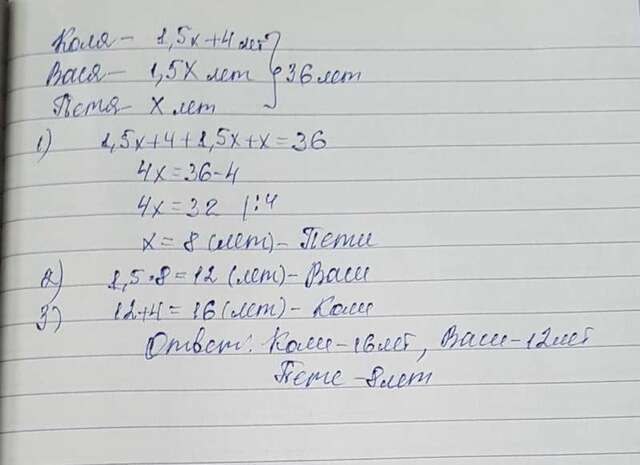 Коля - 1,5x+4 лет
Вася - 1,5X лет } 36 лет
Петя - X лет
1) 1,5x+4+1,5x+x=36
4x=36-4
4x=32 |:4
x=8 (лет) - Пети
2) 1,5•8=12 (лет) - Васи
3) 12+4=16 (лет) - Коли
Ответ: Коли - 16 лет, Васи - 12 лет
Пете - 8 лет